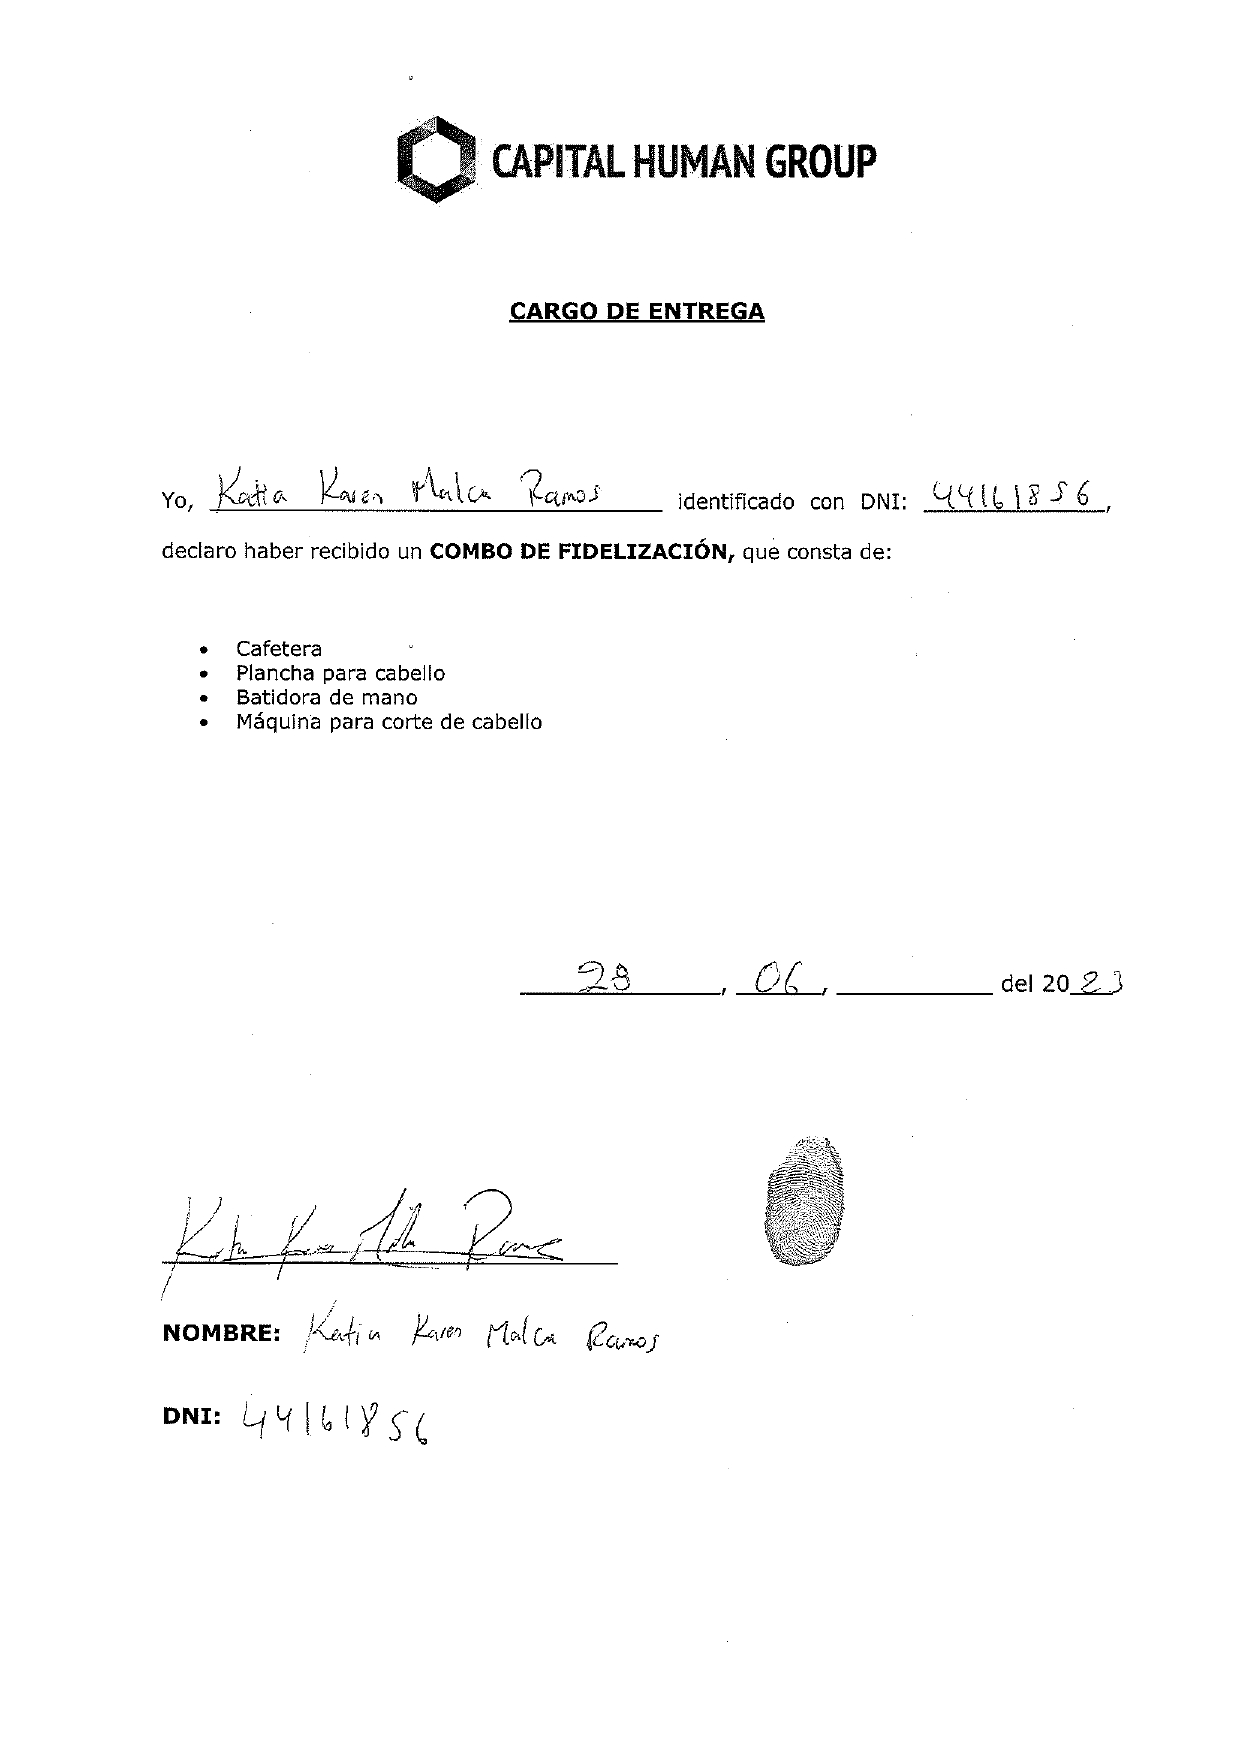 CAPITAL HUMAN GROUP
CARGO DE ENTREGA
Yo, Katia Karen Malca Ramos identificado con DNI: 44161856,
declaro haber recibido un COMBO DE FIDELIZACIÓN, que consta de:
• Cafetera
• Plancha para cabello
• Batidora de mano
• Máquina para corte de cabello
28, 06, del 2023
Katia Karen Malca Ramos
NOMBRE: Katia Karen Malca Ramos
DNI: 44161856